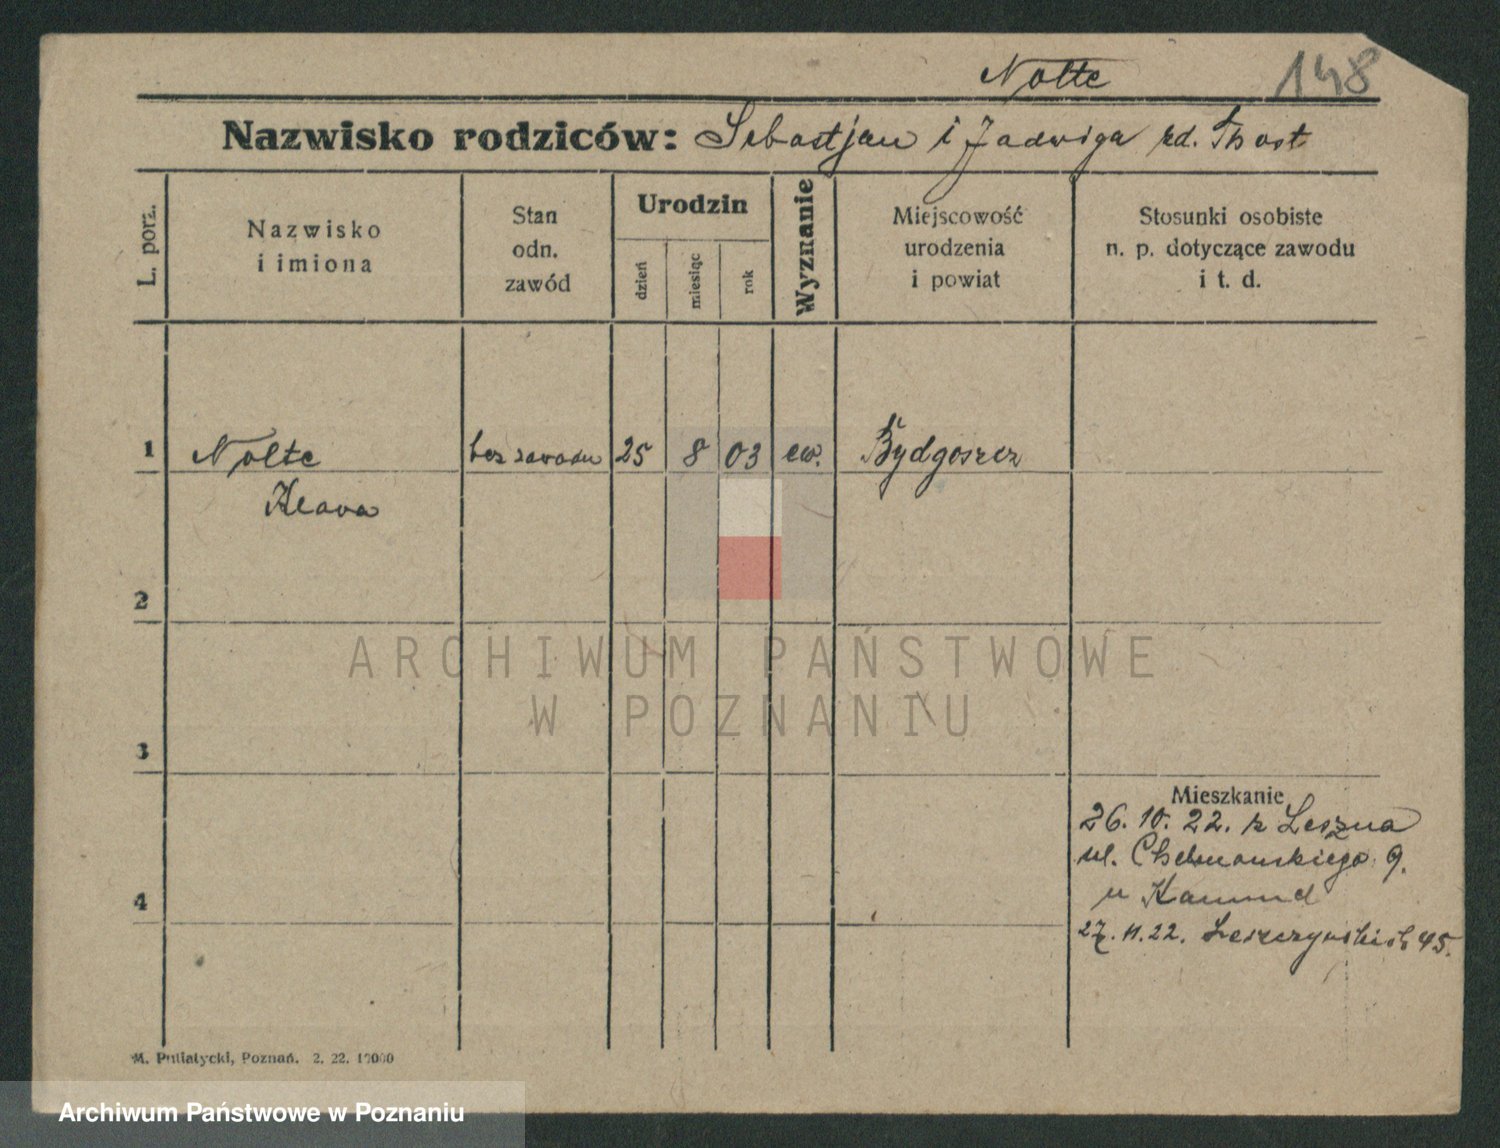 Nolte 148
Nazwisko rodziców: Sebastjan i Jadwiga rd. Thost
L. porz.
Nazwisko
i imiona
Stan
odn.
zawód
Urodzin
dzień
miesiąc
rok
Wyznanie
Miejscowość
urodzenia
i powiat
Stosunki osobiste
n. p. dotyczące zawodu
i t. d.
1 Nolte bez zawodu 25 8 03 ew. Bydgoszcz
Klara
2
ARCHIWUM PAŃSTWOWE
W POZNANIU
3
Mieszkanie
26. 10. 22. z Leszna
ul. Chełmońskiego 9.
u
4
27. 11. 22. Leszczyńskich 45.
M. Putiatycki, Poznań. 2. 22. 10000
Archiwum Państwowe w Poznaniu